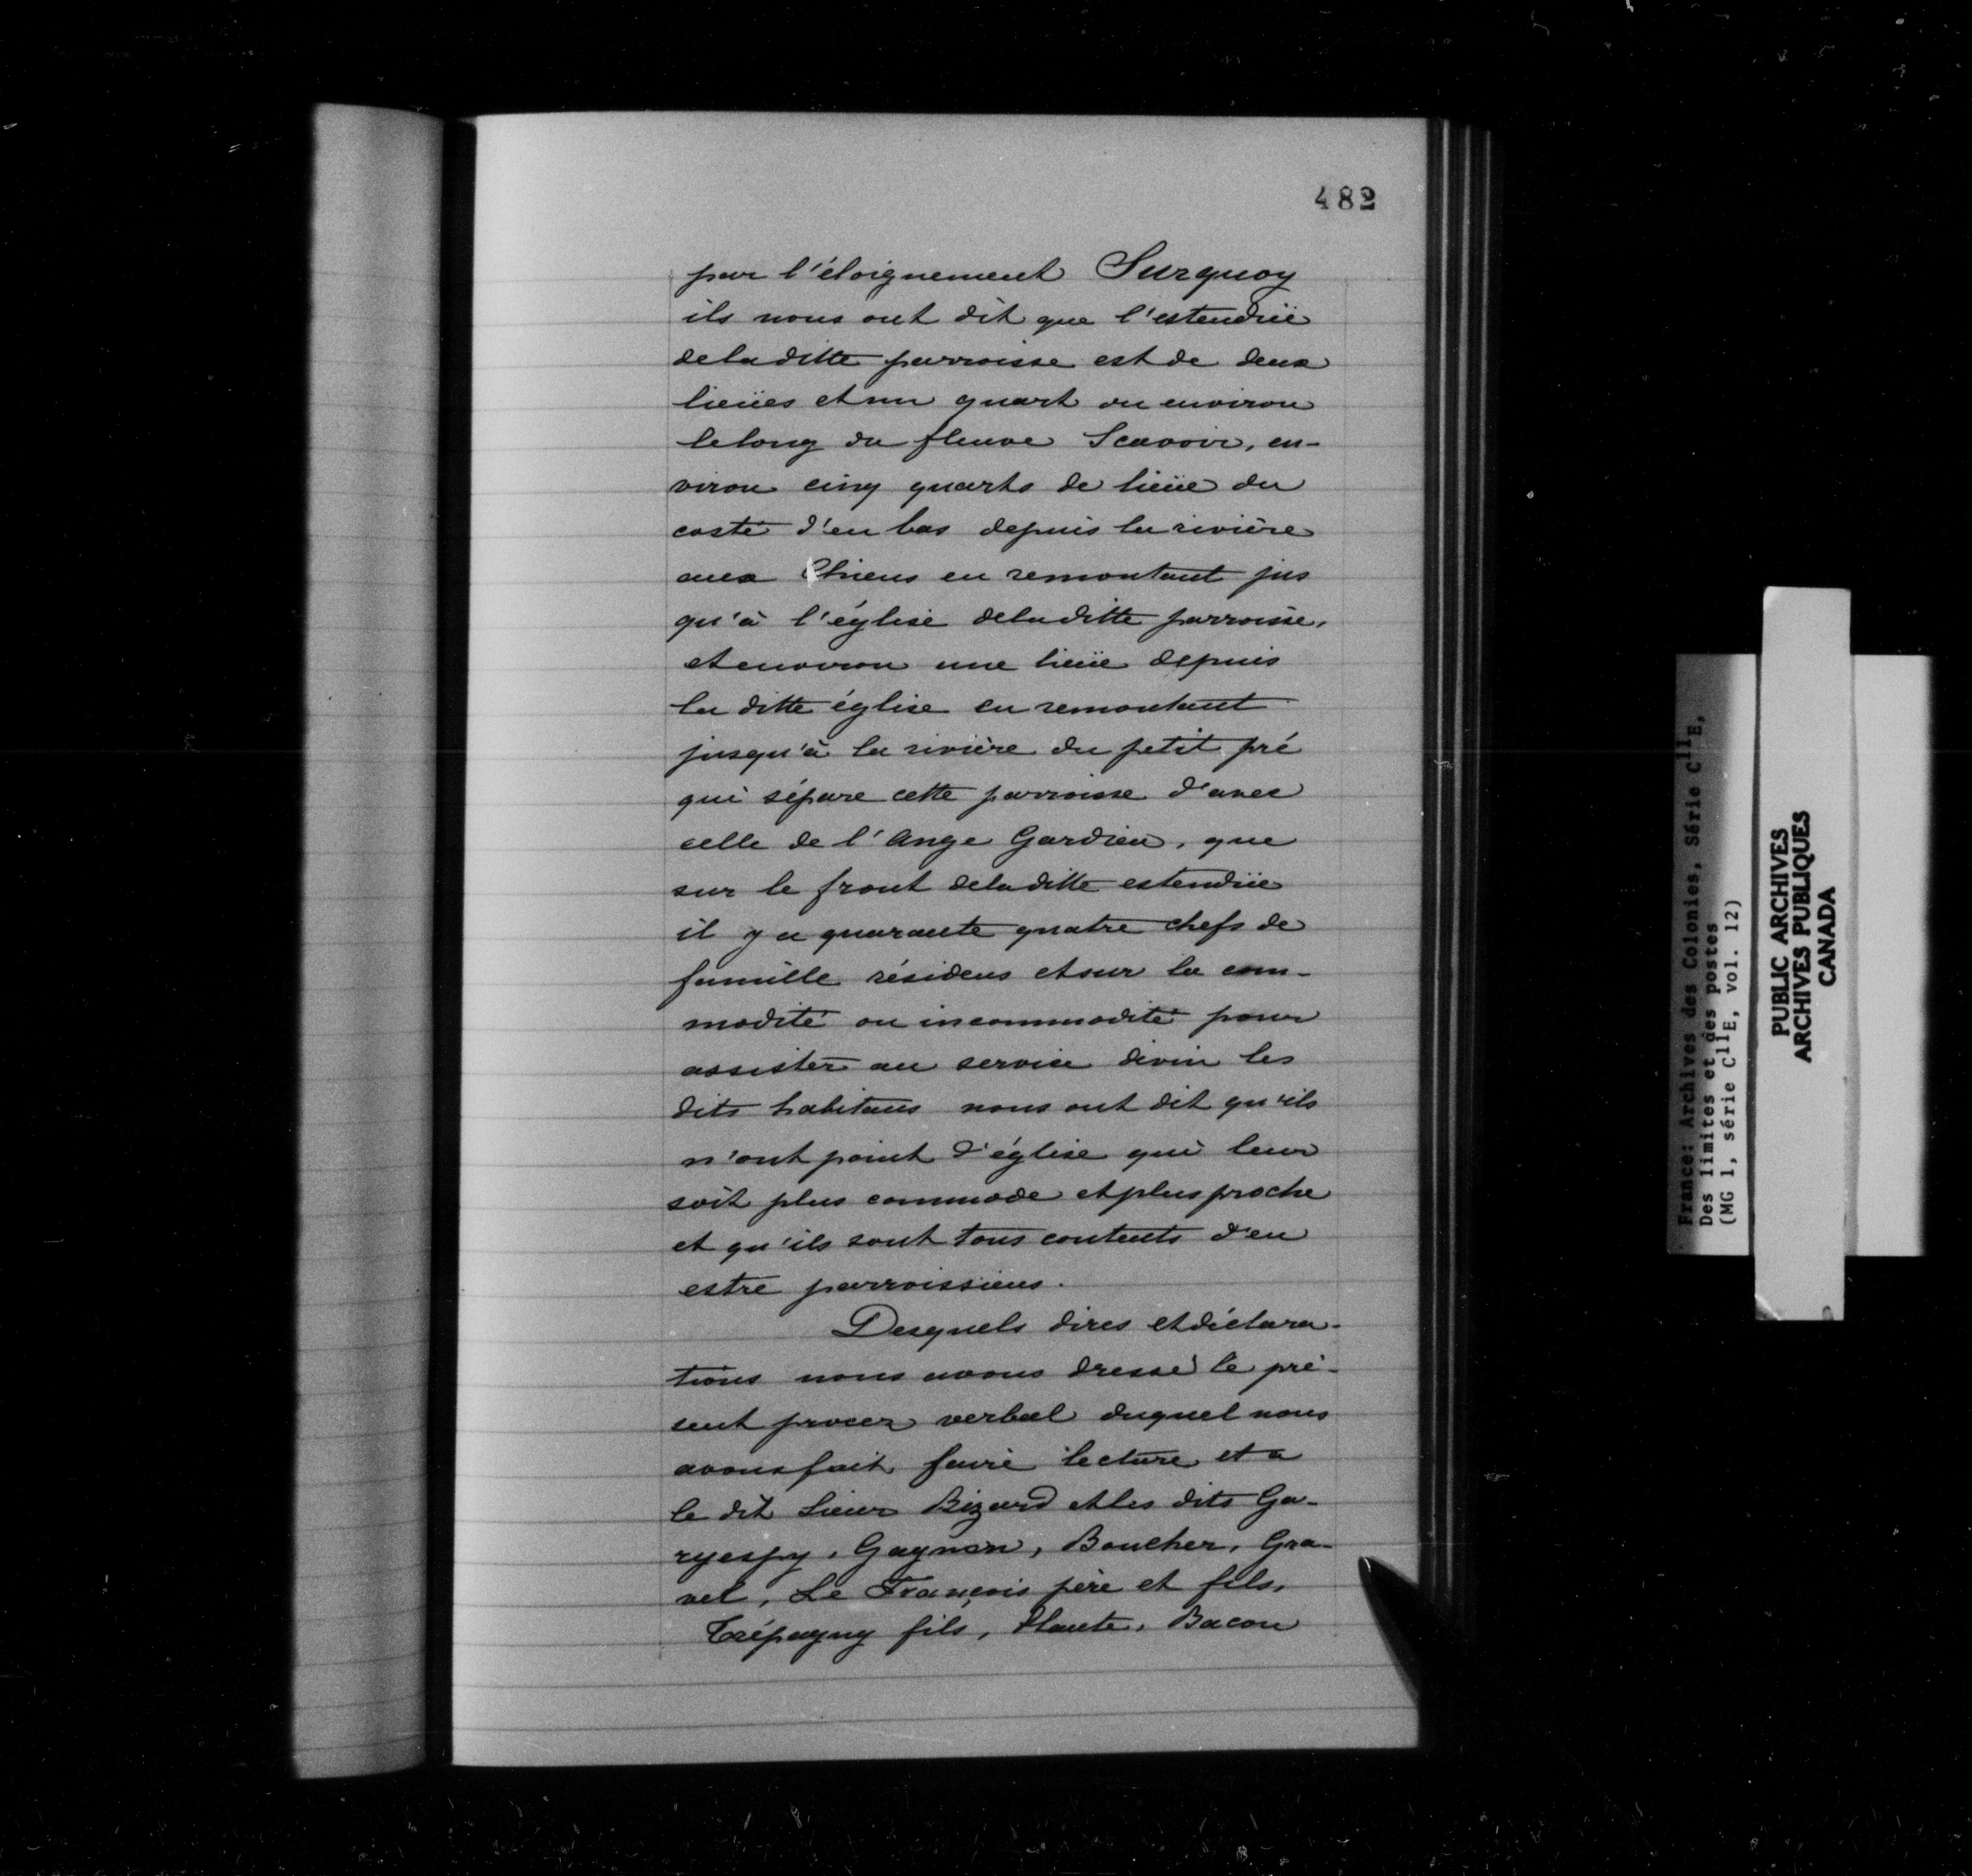 482
par l'éloignement Surquoy
ils nous ont dit que l'estendüe
deladitte parroisse est de deux
lieües et un quart ou environ
lelong du fleuve Scavoir, en-
viron cinq quarts de lieüe du
costé d'en bas depuis la rivière
aux Chiens en remontant jus
qu'à l'église deladitte parroisse,
et environ une lieüe depuis
la ditte église en remontant
jusqu'à la rivière du petit pré
qui sépare cette parroisse d'avec
celle de l'Ange Gardien, que
sur le front deladitte estendüe
il y a quarante quatre chefs de
famille résidens et sur la com-
modité ou incommodité pour
assister au service divin les
dits habitans nous ont dit qu'ils
n'ont point d'église qui leur
soit plus commode et plus proche
et qu'ils sont tous contents d'en
estre parroissiens.
Desquels dires et déclara-
tions nous avons dressé le pré-
sent procez verbal duquel nous
avons fait faire lecture et a
le dit Sieur Bizard et les dits Ga-
ryespy, Gagnon, Boucher, Gra-
vel, Le François père et fils,
Trépagny fils, Plante, Bacon
France: Archives des Colonies, Série C11E,
Des limites et des postes
(MG 1, série C11E, vol. 12)
PUBLIC ARCHIVES
ARCHIVES PUBLIQUES
CANADA